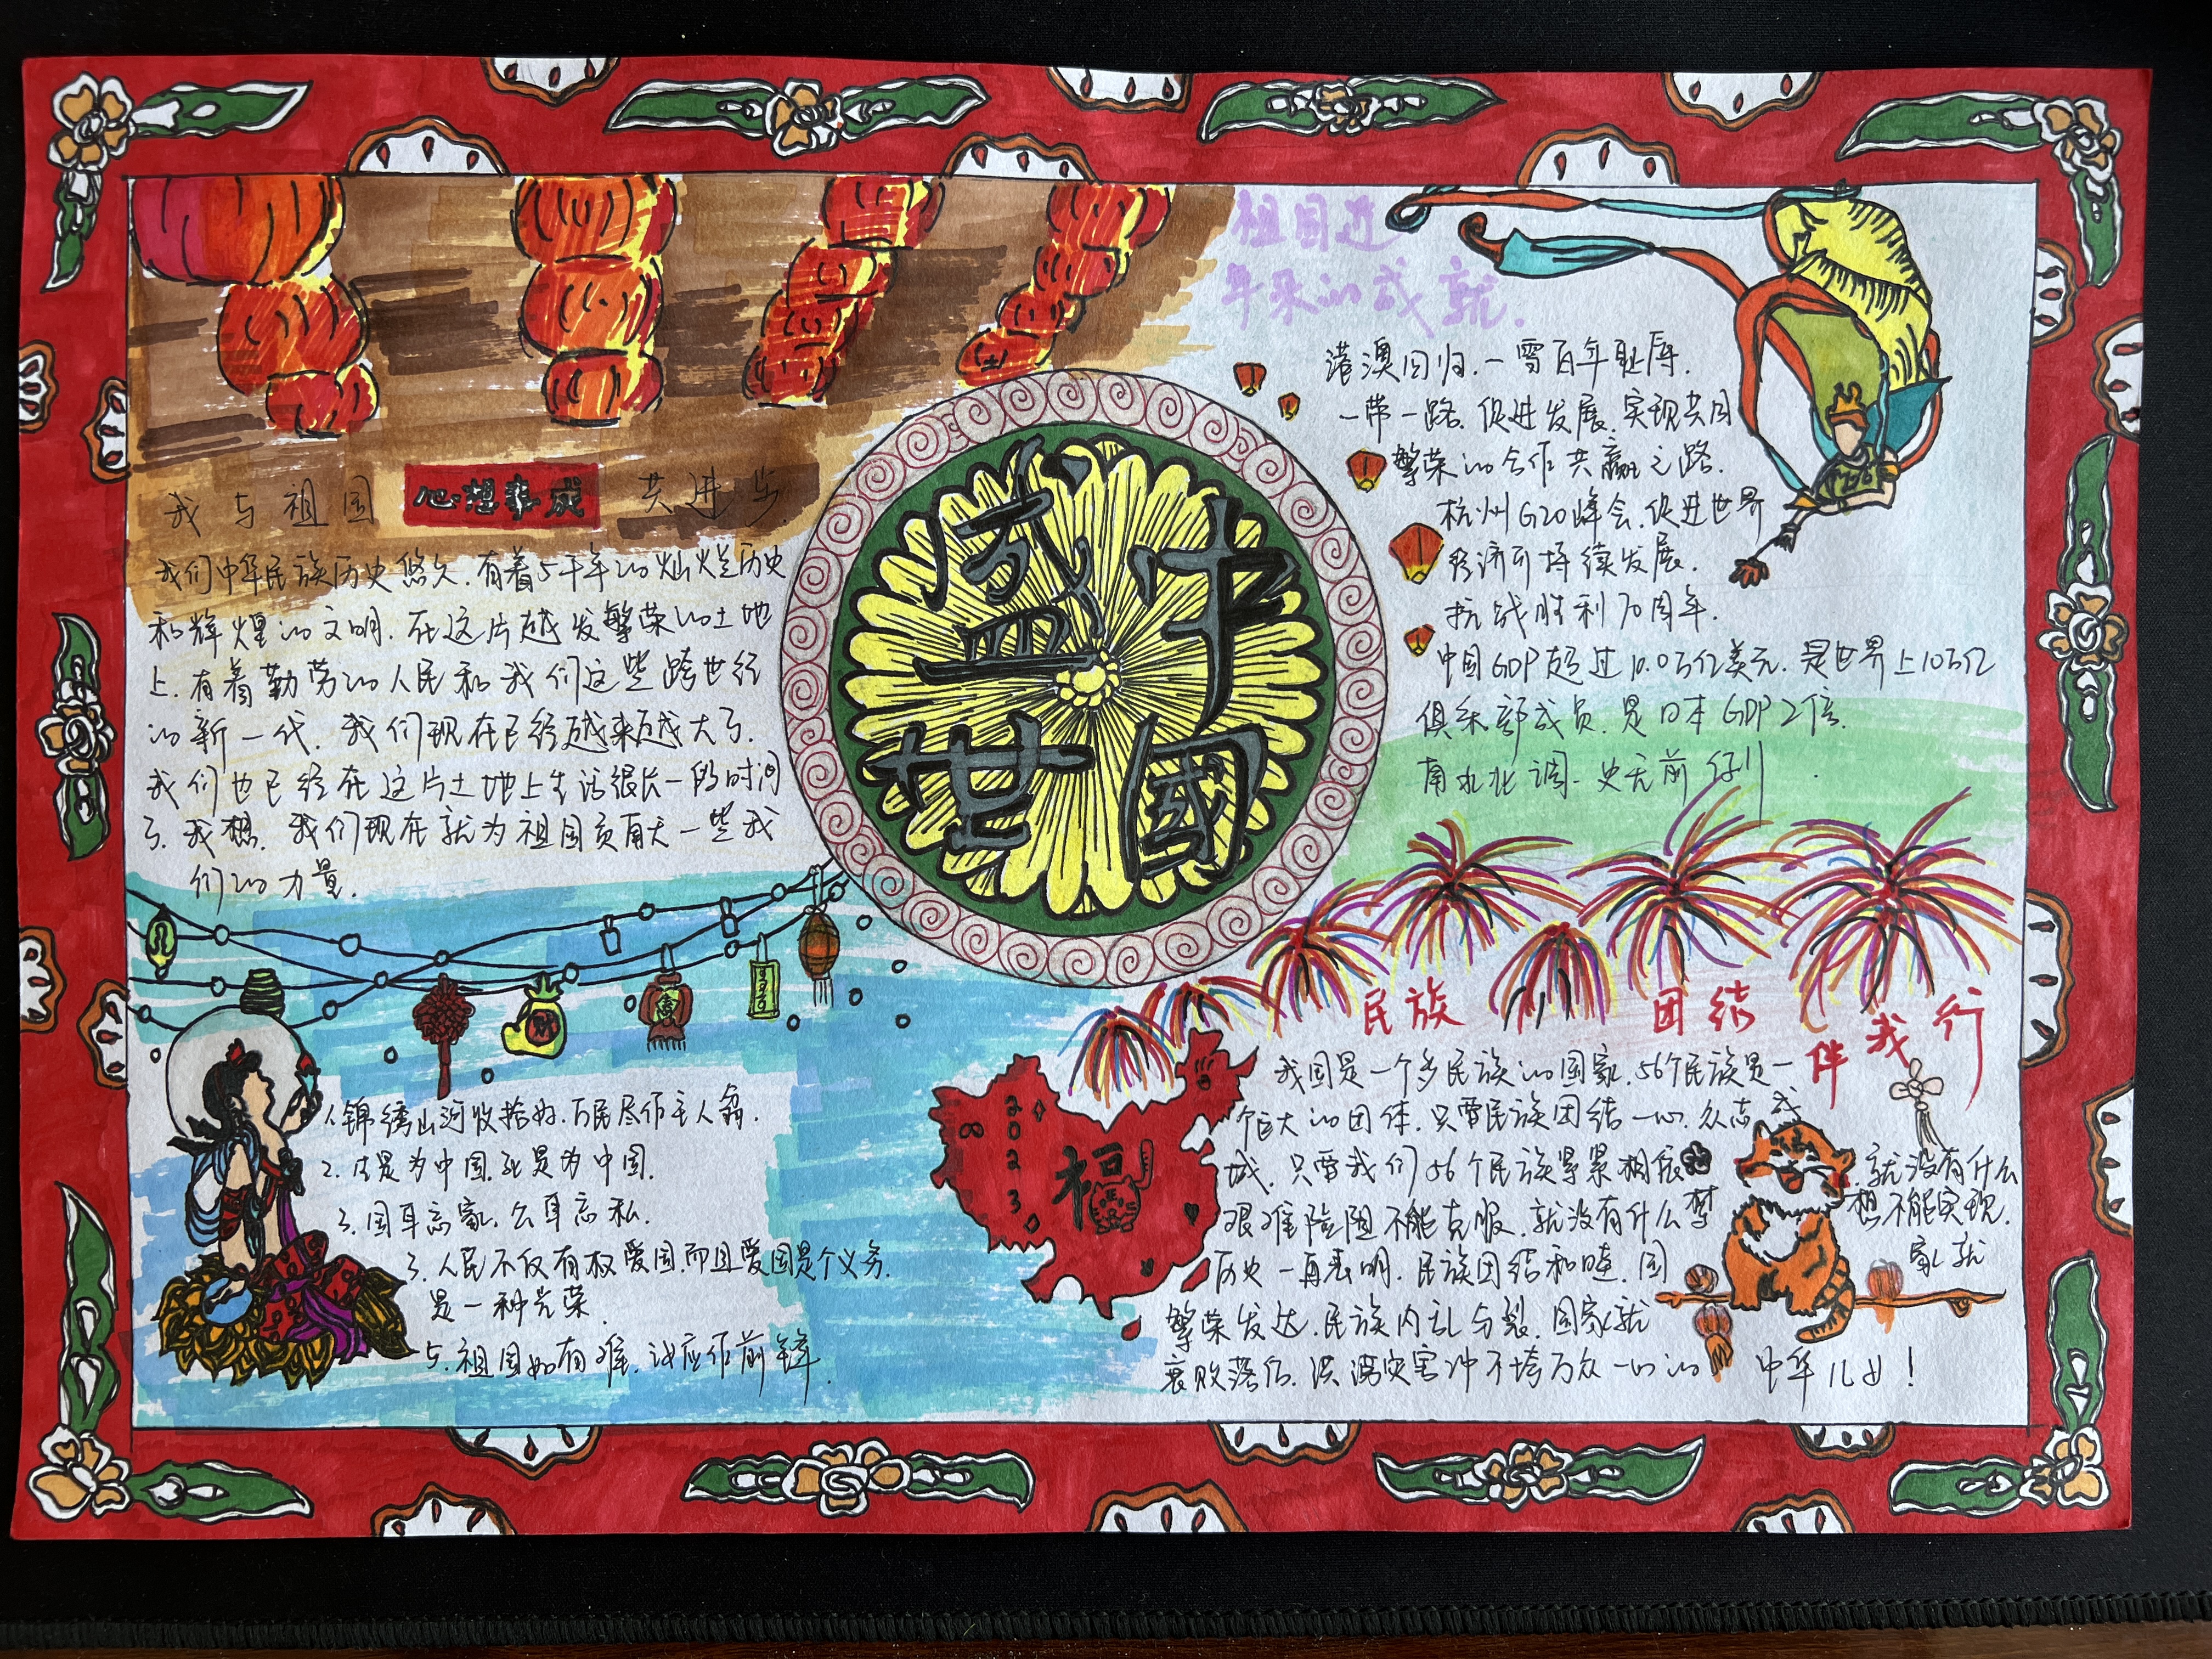 盛世
中國
我与祖国 心想事成 共进步
我们中华民族历史悠久.有着5千年的灿烂历史
和辉煌的文明.在这片越发繁荣的土地
上.有着勤劳的人民和我们这些跨世纪
的新一代.我们现在已经越来越大了.
我们也已经在这片土地上生活很长一段时间
了.我想.我们现在就为祖国贡献一些我
们的力量.
祖国近
年来的成就.
港澳回归.一雪百年耻辱.
一带一路.促进发展.实现共同
繁荣的合作共赢之路.
杭州G20峰会.促进世界
经济可持续发展.
抗战胜利70周年.
中国GDP超过10.0万亿美元.是世界上10万亿
俱乐部成员.是日本GDP2倍.
南水北调.史无前例
1.锦绣山河收拾好.万民尽作主人翁.
2.生是为中国.死是为中国.
3.国耳忘家.公耳忘私.
3.人民不仅有权爱国.而且爱国是个义务.
是一种光荣.
5.祖国如有难.汝应作前锋.
2023
福
民族 团结 伴我行
我国是一个多民族的国家.56个民族是一
个巨大的团体.只要民族团结一心.众志成
城.只要我们56个民族紧紧相依.就没有什么
艰难险阻不能克服.就没有什么梦想不能实现.
历史一再表明.民族团结和睦.国家就
繁荣发达.民族内乱分裂.国家就
衰败落后.洪涝灾害冲不垮万众一心的中华儿女!